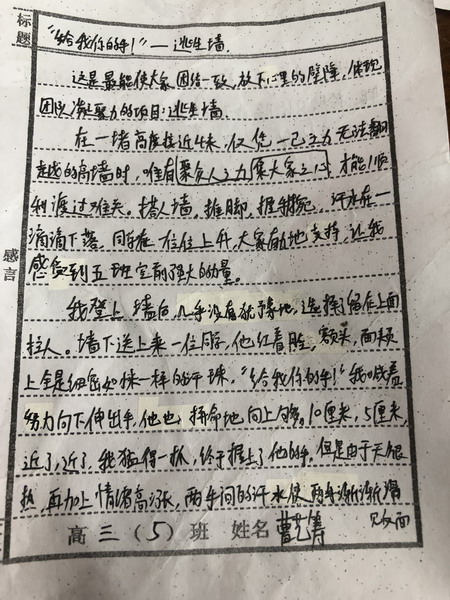 标题
"给我你的手!"——逃生墙.
这是最能使大家团结一致,放下心里的壁障,体现
团队凝聚力的项目:逃生墙.
在一堵高度接近4米,仅凭一己之力无法翻
越的高墙时,唯有聚众人之力集大家之心才能顺
利渡过难关。搭人墙,推脚,握手腕,汗水在一
滴滴下落,同学在一位位上升,大家有力地支持,让我
感受到五班空前强大的力量。
感言
我登上墙后,几乎没有犹豫地,选择了留在上面
拉人。墙下送上来一位同学,他红着脸,额头,面颊
上全是细密如珠一样的汗珠,"给我你的手!"我喊着
努力向下伸出手,他也拼命地向上够,10厘米,5厘米,
近了,近了,我猛得一抓,终于握上了他的手,但是由于天气
热,再加上情绪高涨,两手间的汗水使两手渐渐滑
高三(5)班 姓名
见反面